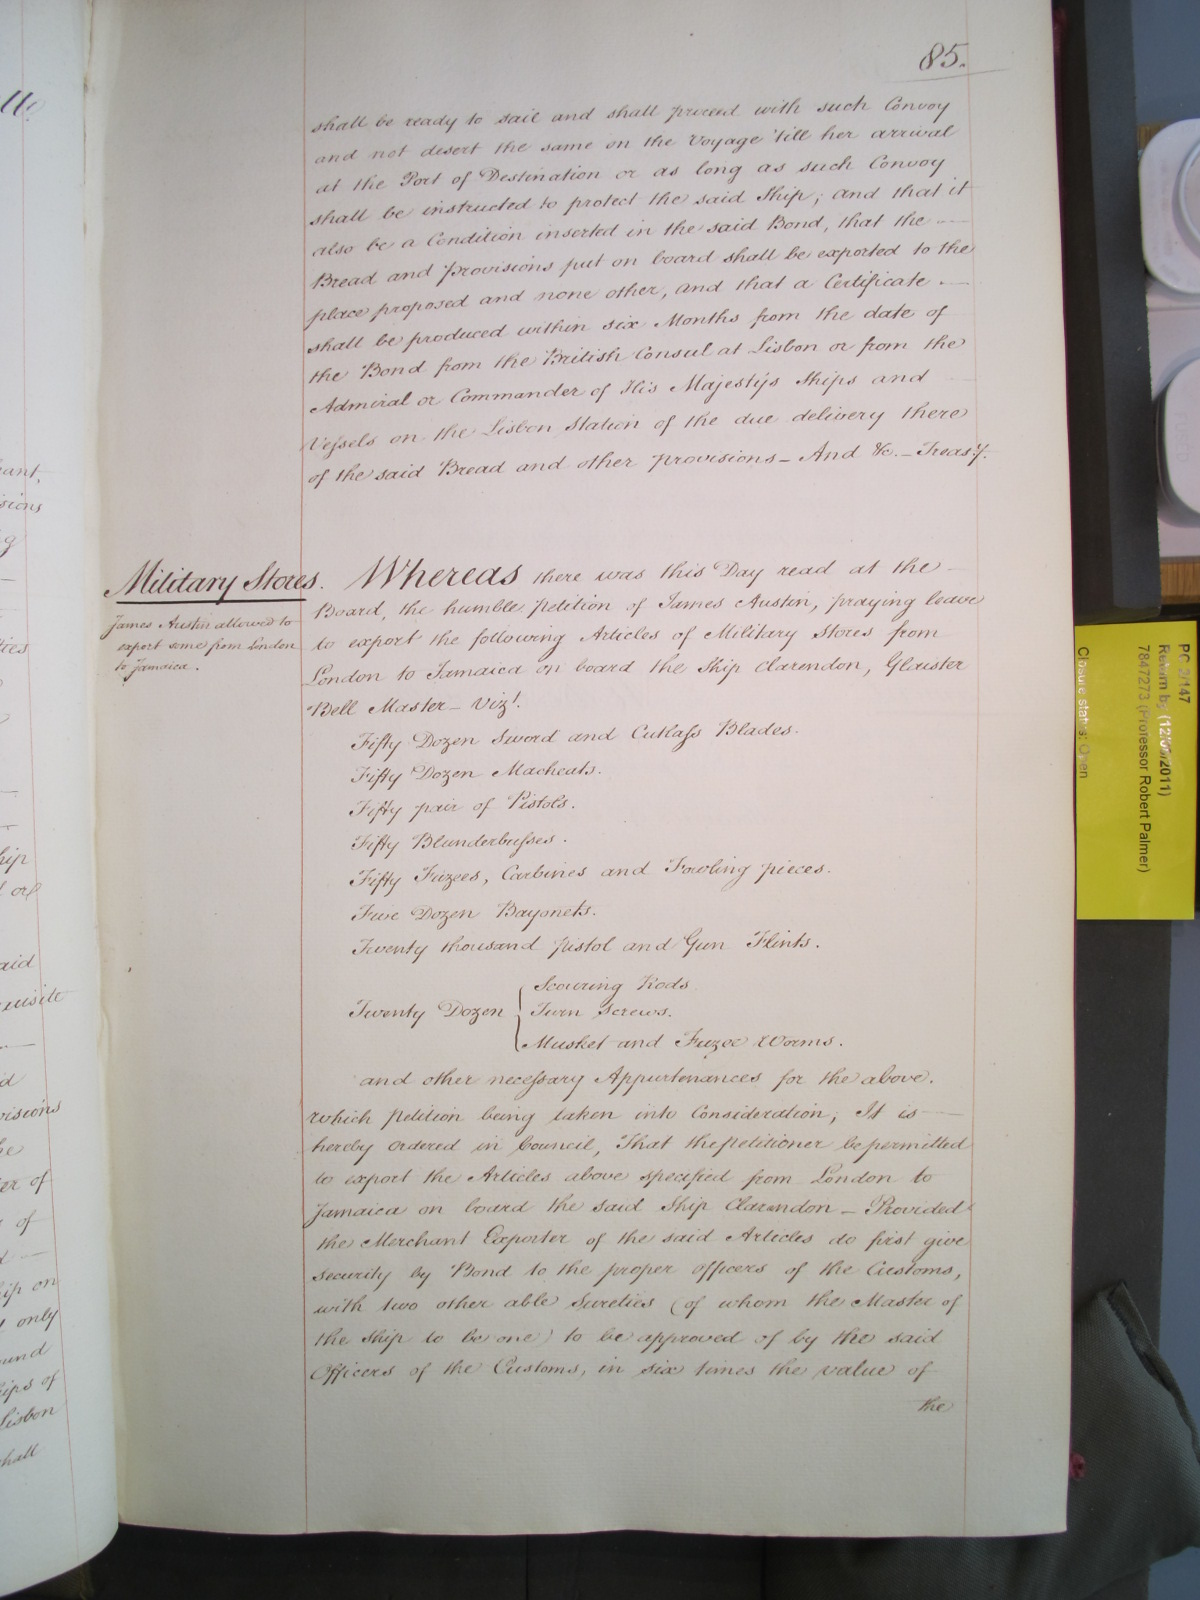 85.
shall be ready to sail and shall proceed with such Convoy
and not desert the same on the Voyage 'till her arrival
at the Port of Destination or as long as such Convoy
shall be instructed to protect the said Ship; and that it
also be a Condition inserted in the said Bond, that the
Bread and Provisions put on board shall be exported to the
place proposed and none other, and that a Certificate
shall be produced within six Months from the date of
the Bond from the British Consul at Lisbon or from the
Admiral or Commander of His Majesty's Ships and
Vessels on the Lisbon Station of the due delivery there
of the said Bread and other provisions_ And &c._ Treasy.
Military Stores.
James Austin allowed to
export some from London
to Jamaica.
Whereas there was this Day read at the
Board, the humble petition of James Austin, praying leave
to export the following Articles of Military Stores from
London to Jamaica on board the Ship Clarendon, Glauster
Bell Master_ Vizt.
Fifty Dozen Sword and Cutlass Blades.
Fifty Dozen Macheats.
Fifty pair of Pistols.
Fifty Blunderbusses.
Fifty Fuzees, Carbines and Fowling pieces.
Five Dozen Bayonets.
Twenty thousand pistol and Gun Flints.
Scouring Rods
Twenty Dozen Turn Screws.
Musket and Fuzee Worms.
and other necessary Appurtenances for the above.
which petition being taken into Consideration; It is
hereby ordered in Council, That the petitioner be permitted
to export the Articles above specified from London to
Jamaica on board the said Ship Clarendon _ Provided
the Merchant Exporter of the said Articles do first give
security by Bond to the proper officers of the Customs,
with two other able Sureties (of whom the Master of
the Ship to be one) to be approved of by the said
Officers of the Customs, in six times the value of
the
PC 2/147
Return by (12/05/2011)
7847273 (Professor Robert Palmer)
Closure status: Open